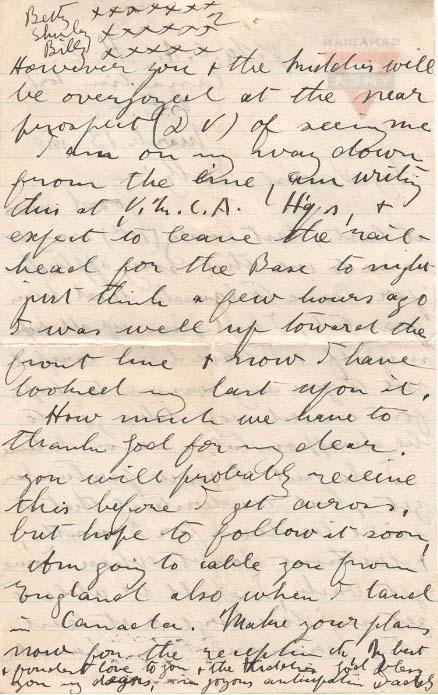 Betty x x x x x x x
Shirley x x x x x x
Billy x x x x x
However you + the kiddies will
be overjoyed at the near
prospect (D V) of seeing me
I am on my way down
from the line, am writing
this at Y.M.C.A. Hqs, +
expect to leave the rail-
head for the Base to night
just think a few hours ago
I was well up toward the
front line + now I have
looked my last upon it.
How much we have to
thank God for my dear.
you will probably receive
this before I get across,
but hope to follow it soon
Am going to cable you from
England also when I land
in Canada. Make your plans
now for the reception. My best
+ fondest love to you + the kiddies God bless
you my dears, in joyous anticipation
CANADIAN